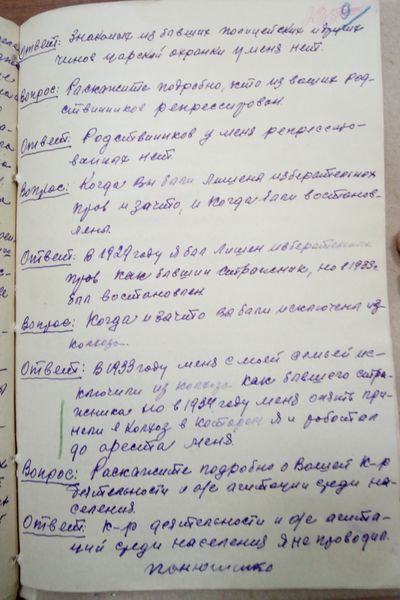 9
Ответ: Знакомых из бавших полицейских и других
чинов царской охранки у меня нет.
Вопрос: Раскажите подробно, кто из ваших род-
ствинников репрессирован.
Ответ: Родствинников у меня репрессиро-
ванных нет.
Вопрос: Когда вы были лишена изберательных
прав и зачто, и когда были востанов-
лены.
Ответ: В 1929 году я был лишен изберательных
прав как бывший стражник, но в 1933г
был востановлен.
Вопрос: Когда и зачто вы были исключены из
колхоза.
Ответ: В 1933 году меня с моей семьей ис-
ключили из колхоза как бывшего стра-
жника но в 1934 году меня опять при-
нели в колхоз в котором я и работал
до ареста меня.
Вопрос: Раскажите подробно о Вашей к-р
деятельности и а/с агитации среди на-
селения.
Ответ: К-ро деятельности и а/с агита-
ций среди населения я не проводил.